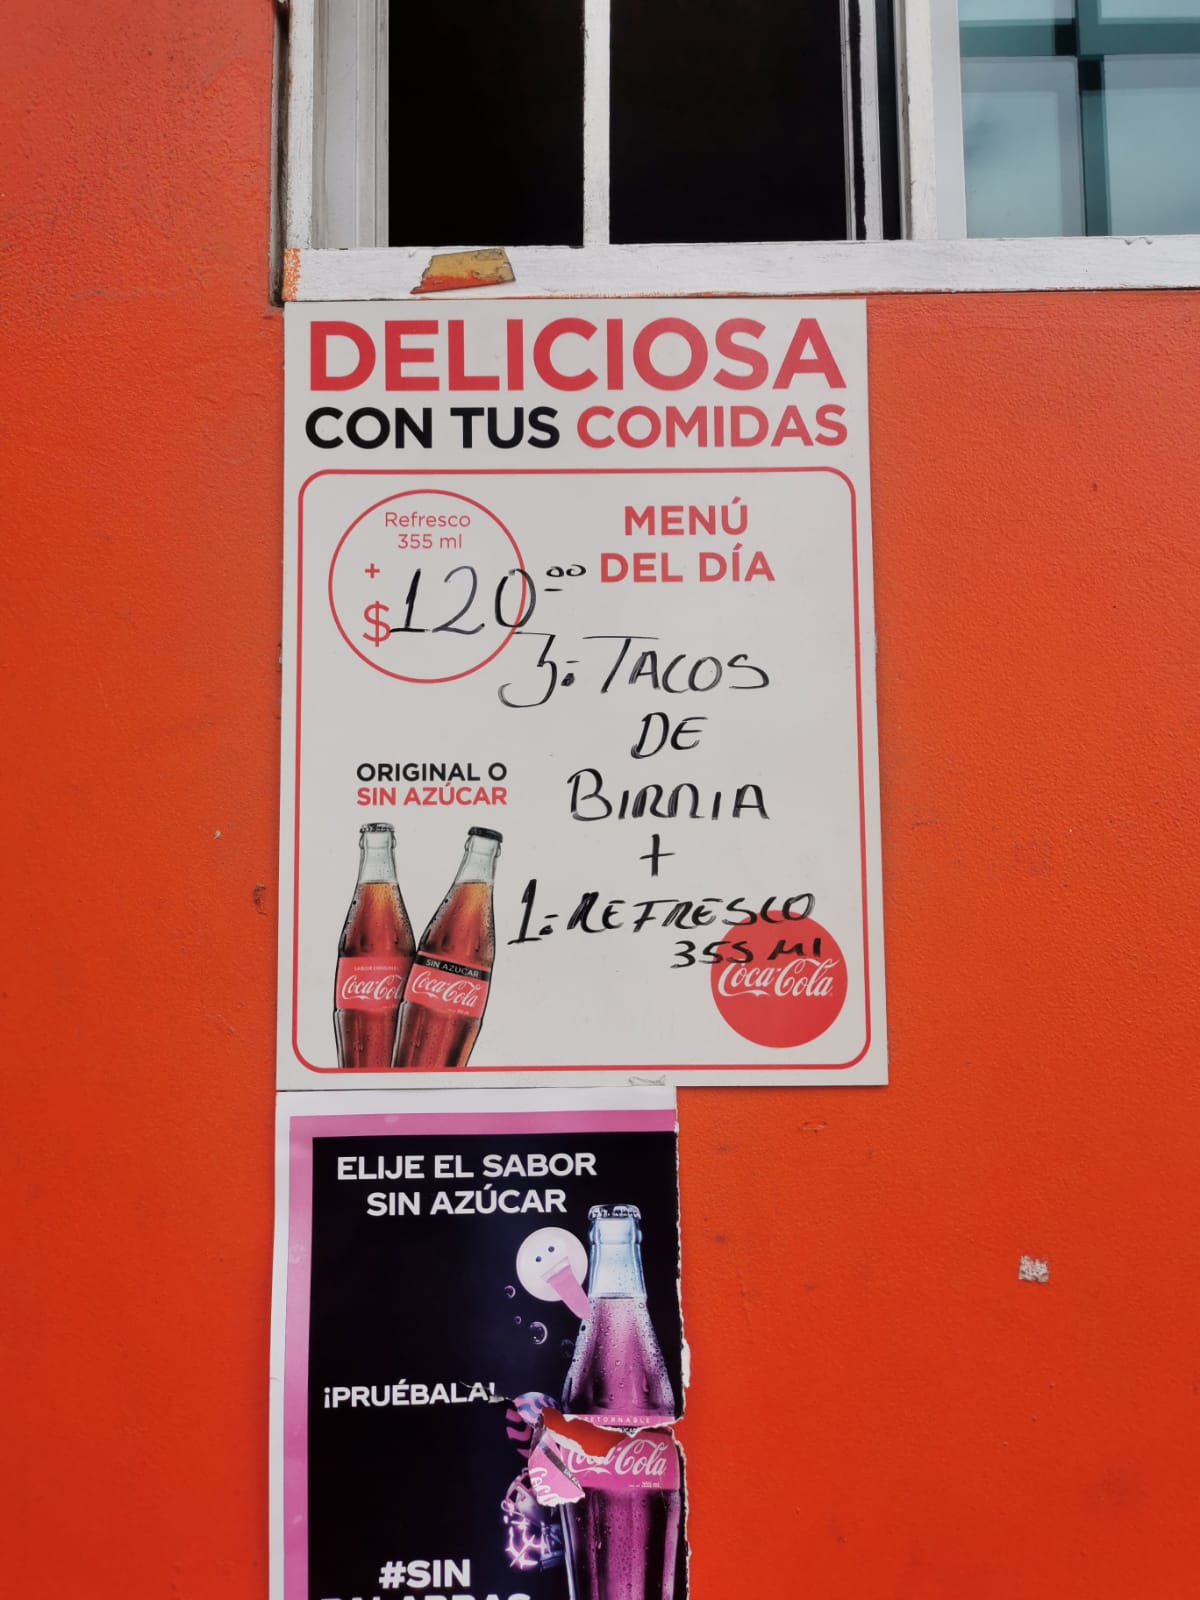 DELICIOSA
CON TUS COMIDAS
Refresco
355 ml
+
$120.00
MENÚ
DEL DÍA
3.- TACOS
DE
BIRRIA
+
1.- REFRESCO
355 Ml
Coca-Cola
ORIGINAL O
SIN AZÚCAR
SABOR ORIGINAL
Coca-Cola
SIN AZÚCAR
Coca-Cola
ELIJE EL SABOR
SIN AZÚCAR
¡PRUÉBALA!
RETORNABLE
Coca-Cola
355 ml
#SIN
PALABRAS